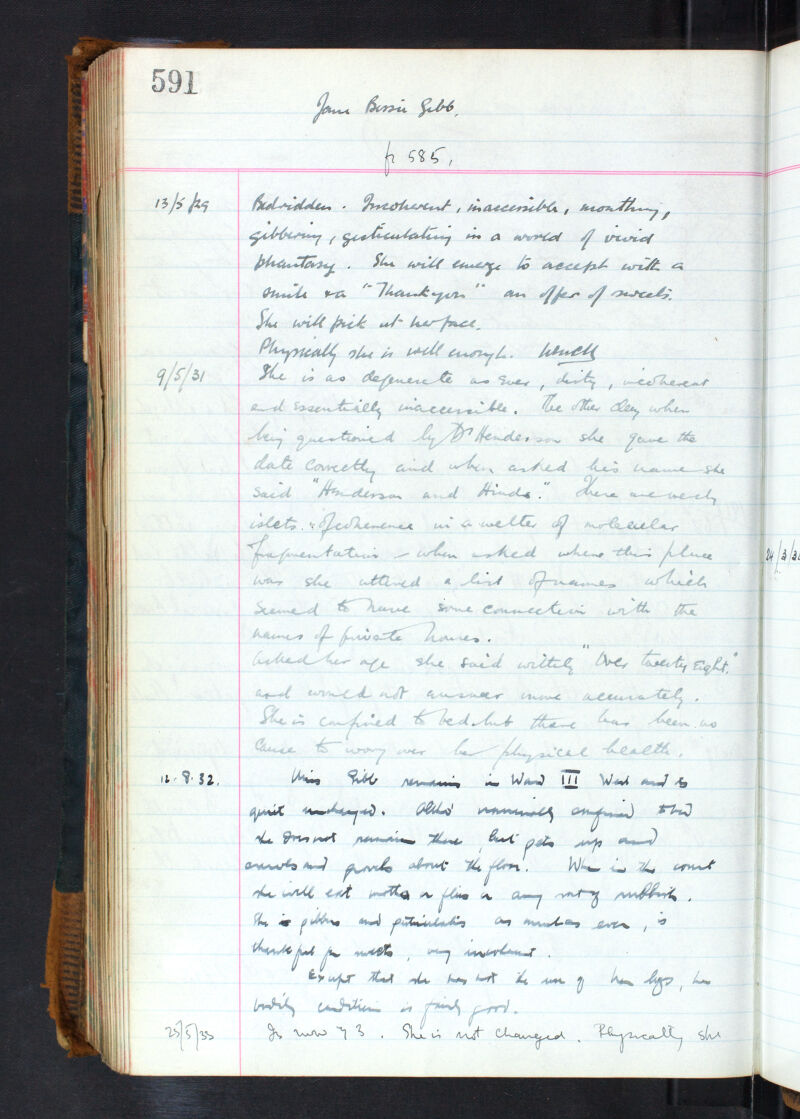 591
Jane Bessie Gibb.
fr 585.
13/5/29 Bedridden. Incoherent, inaccessible, mouthing,
gibbering, gesticulating in a world of vivid
phantasy. She will emerge to accept with a
smile & a "Thankyou" an offer of sweets.
She will pick at her face.
Physically she is well enough.
9/5/31 She is as degenerate as ever, dirty, incoherent
and essentially inaccessible. The other day when
being questioned by Dr Henderson she gave the
date correctly and when asked his name she
said "Henderson and Hinds." These are merely
islets of coherence in a welter of molecular
fragmentation - when asked where this place
was she uttered a list of names which
seemed to have some connection with the
names of private houses.
Asked her age she said wittily "Over twenty eight,"
and would not answer more accurately.
She is confined to bed but there has been no
cause to worry over her physical health.
12.8.32. Miss Gibb remains in Ward III West and is
quite unchanged. Altho' nominally confined to bed
she does not remain there, but gets up and
crawls and prowls about the floor. When in the court
she will eat moths or flies or any sort of rubbish.
She gibbers and gesticulates as much as ever, is
thankful for sweets, very incoherent.
Except that she has not the use of her legs, her
bodily condition is fairly good.
25/5/33 Is now 73. She is not changed. Physically she
24/3/3